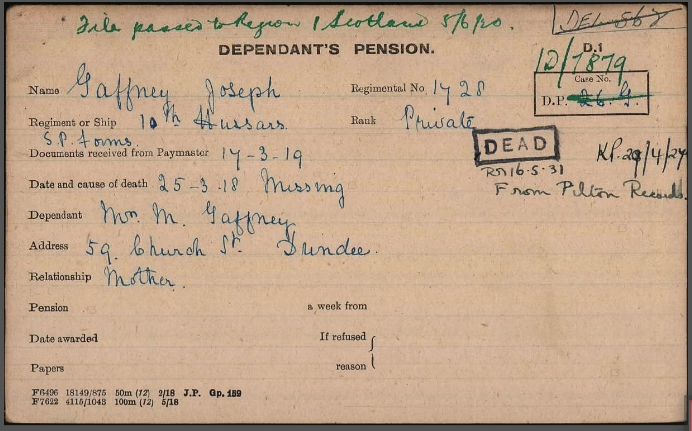 File passed to Region 1 Scotland 5/6/20.
DEPENDANT'S PENSION.
D.1
12/7879
Name Gaffney Joseph Regimental No. 1728
Case No.
D.P. 26. G.
Regiment or Ship 10th Hussars Rank Private
S.P. Forms.
Documents received from Paymaster 17-3-19
DEAD
Date and cause of death 25-3-18 Missing
16.5.31
From Pilton Records.
Dependant Mrs. M. Gaffney
Address 59. Church St. Dundee.
Relationship Mother.
Pension a week from
Date awarded If refused
Papers reason
F6496 18149/875 50m (12) 2/18 J.P. Gp. 159
F7622 4115/1043 100m (12) 5/18